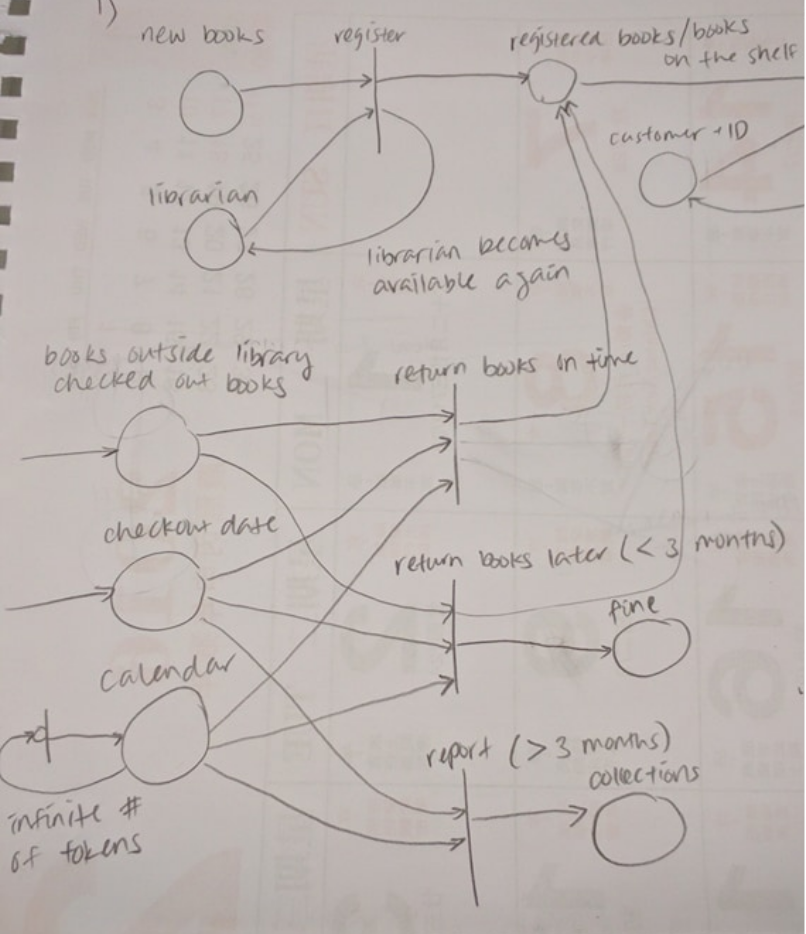 1)
new books
register
registered books/books
on the shelf
customer + ID
librarian
librarian becomes
available again
books outside library
checked out books
return books on time
checkout date
return books later (< 3 months)
fine
calendar
report (> 3 months)
collections
infinite #
of tokens